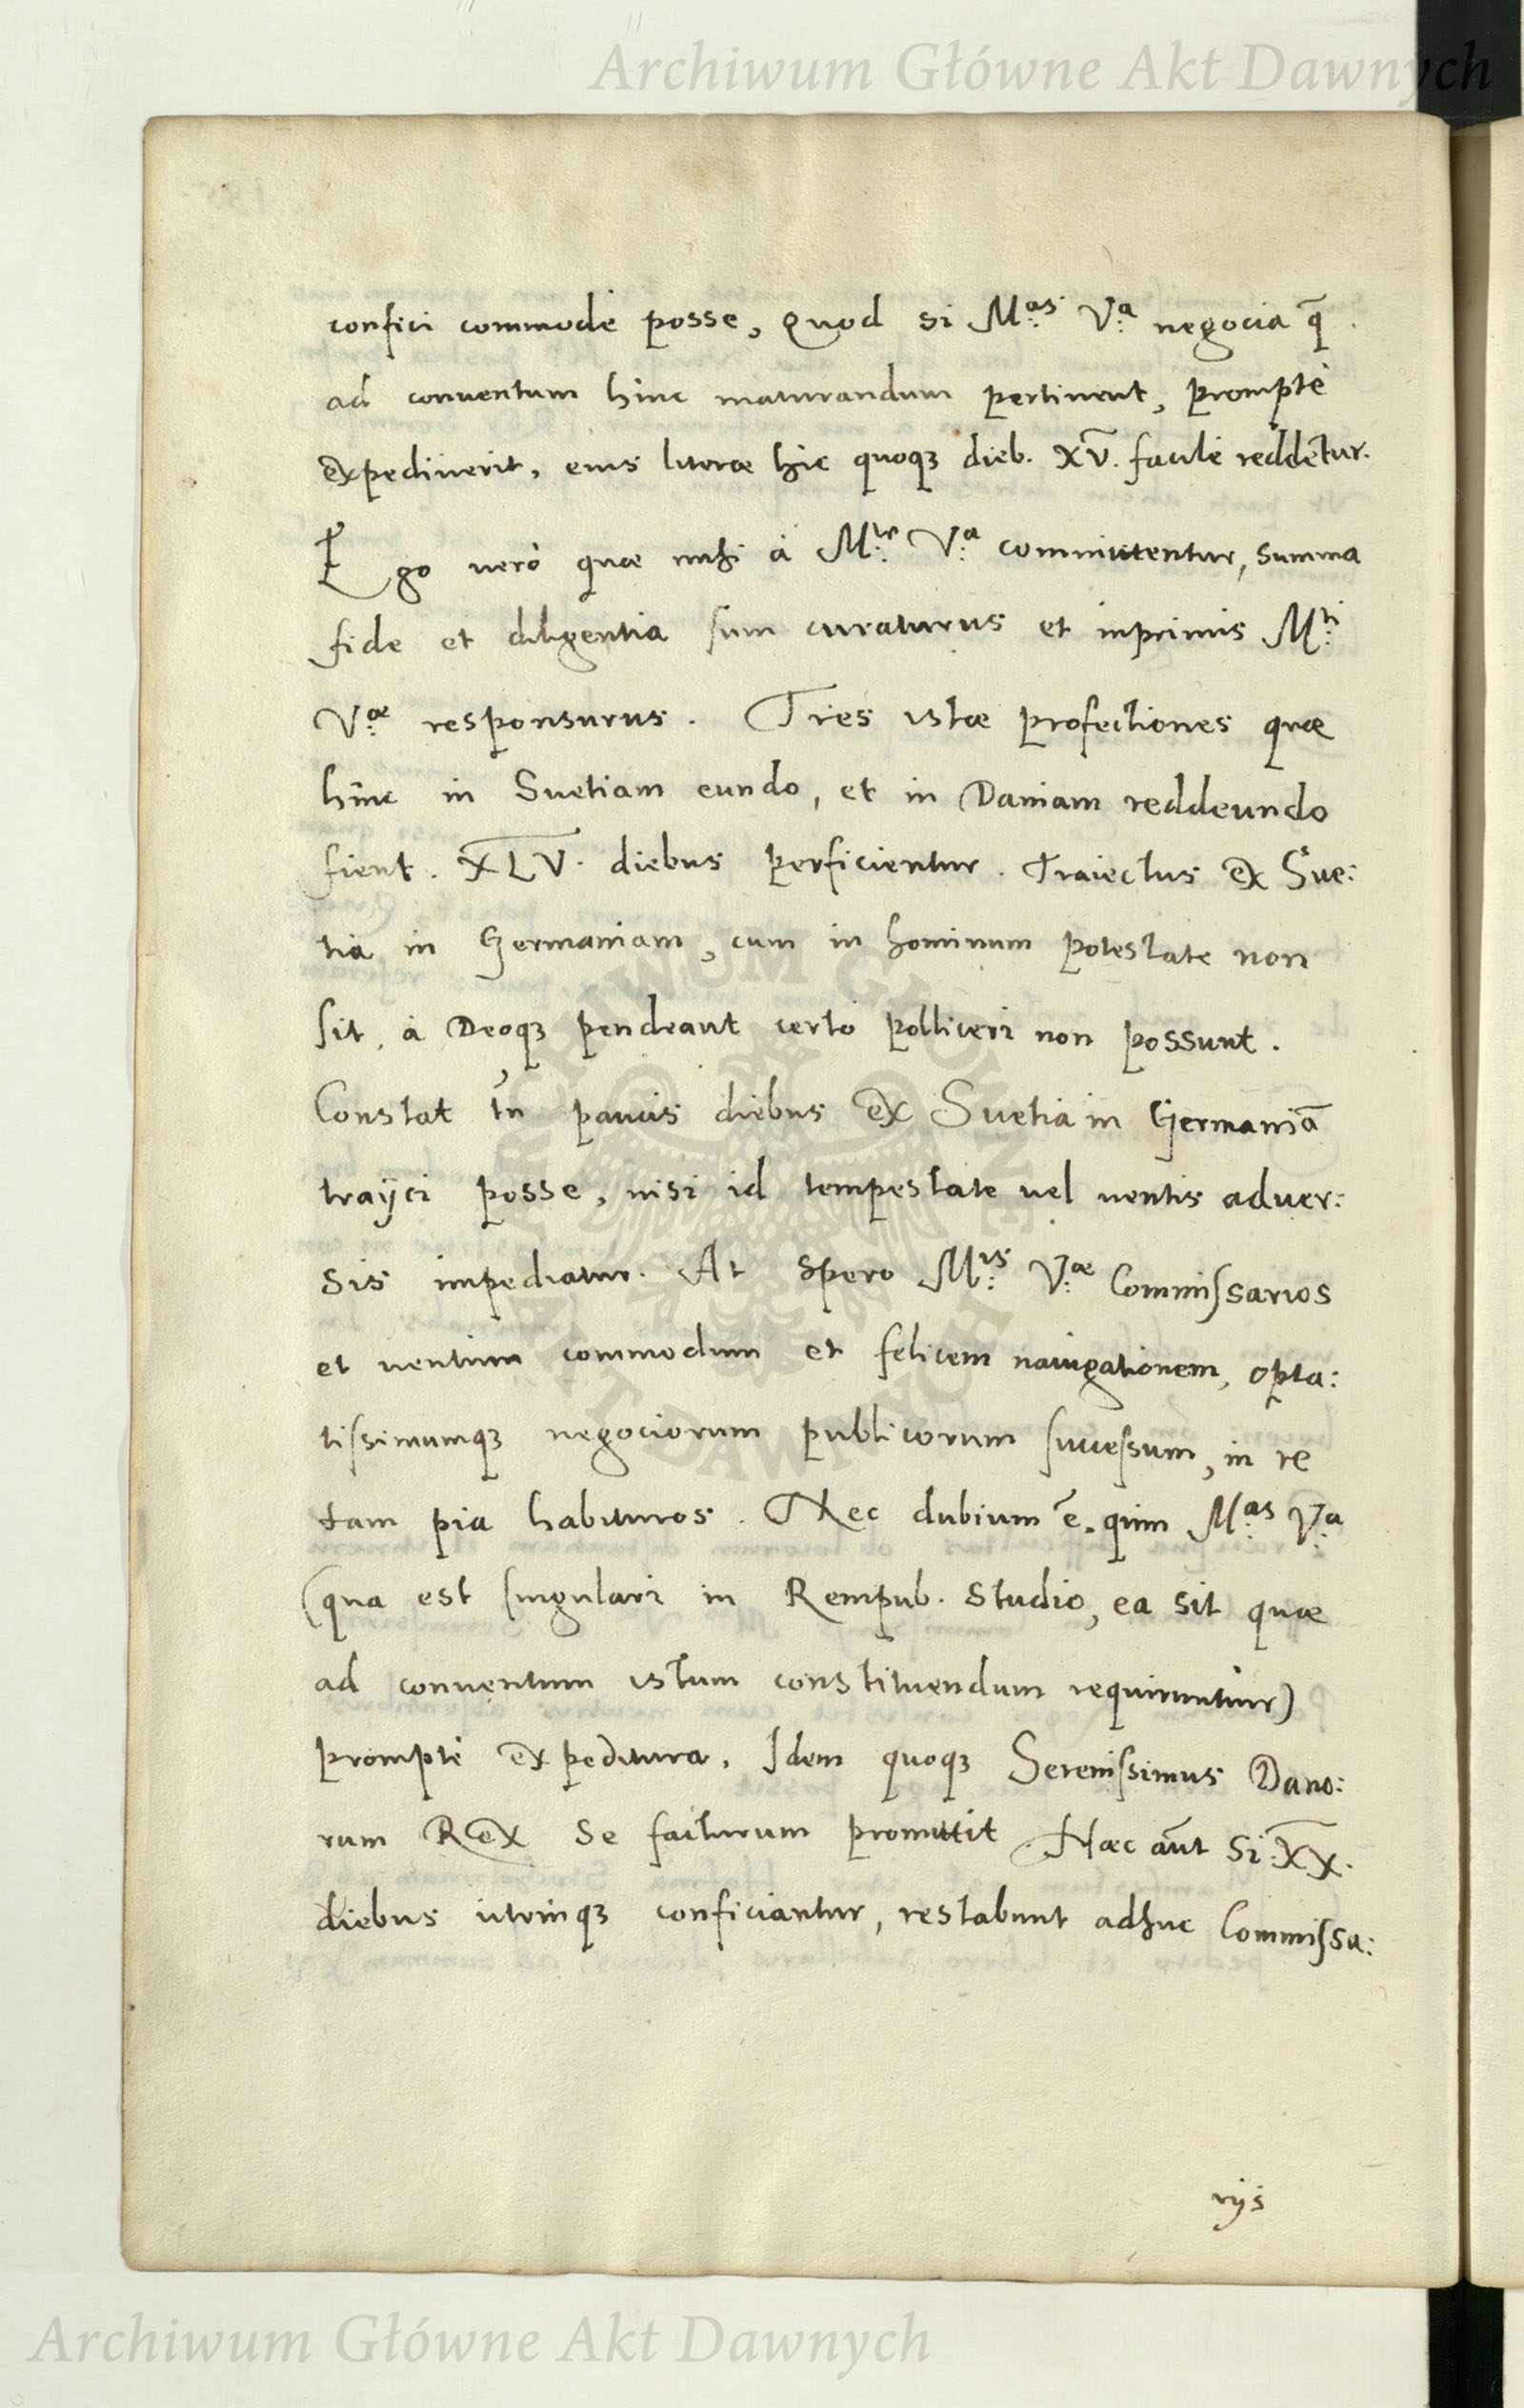 Archiwum Główne Akt Dawnych
confici commodè posse, Quod si M:as V:a negocia q̃
ad conuentum hinc maturandum pertinent, promptè
expediuerit, eius literæ hic quoqꝫ dieb. XV. facilè reddẽtur.
Ego uerò quæ mihi à M:te V:a committentur, summa
fide et diligentia sum curaturus et inprimis M:ti
V:æ responsurus. Tres istæ profectiones quæ
hinc in Suetiam eundo, et in Daniam reddeundo
fient. XLV. diebus perficientur. Traiectus ex Sue:
tia in Germaniam, cum in hominum potestate non
sit, à Deoqꝫ pendeant certò polliceri non possunt.
Constat tñ paucis diebus ex Suetia in Germaniã
traÿci posse, nisi id tempestate uel uentis aduer:
sis impediatur. At spero M:tis V:æ Commissarios
et uentum commodum et felicem nauigationem, opta:
tissimumqꝫ negociorum publicorum successum, in re
tam pia habituros. Nec dubium ẽ. quin M:as V:a
(qua est singulari in Rempub. studio, ea sit quæ
ad conuentum istum constituendum requiruntur)
promptè expeditura. Idem quoqꝫ Serenissimus Dano:
rum Rex se facturum promittit. Hæc aũt si XX.
diebus utrinqꝫ conficiantur, restabunt adhuc Commissa:
rÿs
ARCHIWUM GŁÓWNE AKT DAWNYCH
Archiwum Główne Akt Dawnych